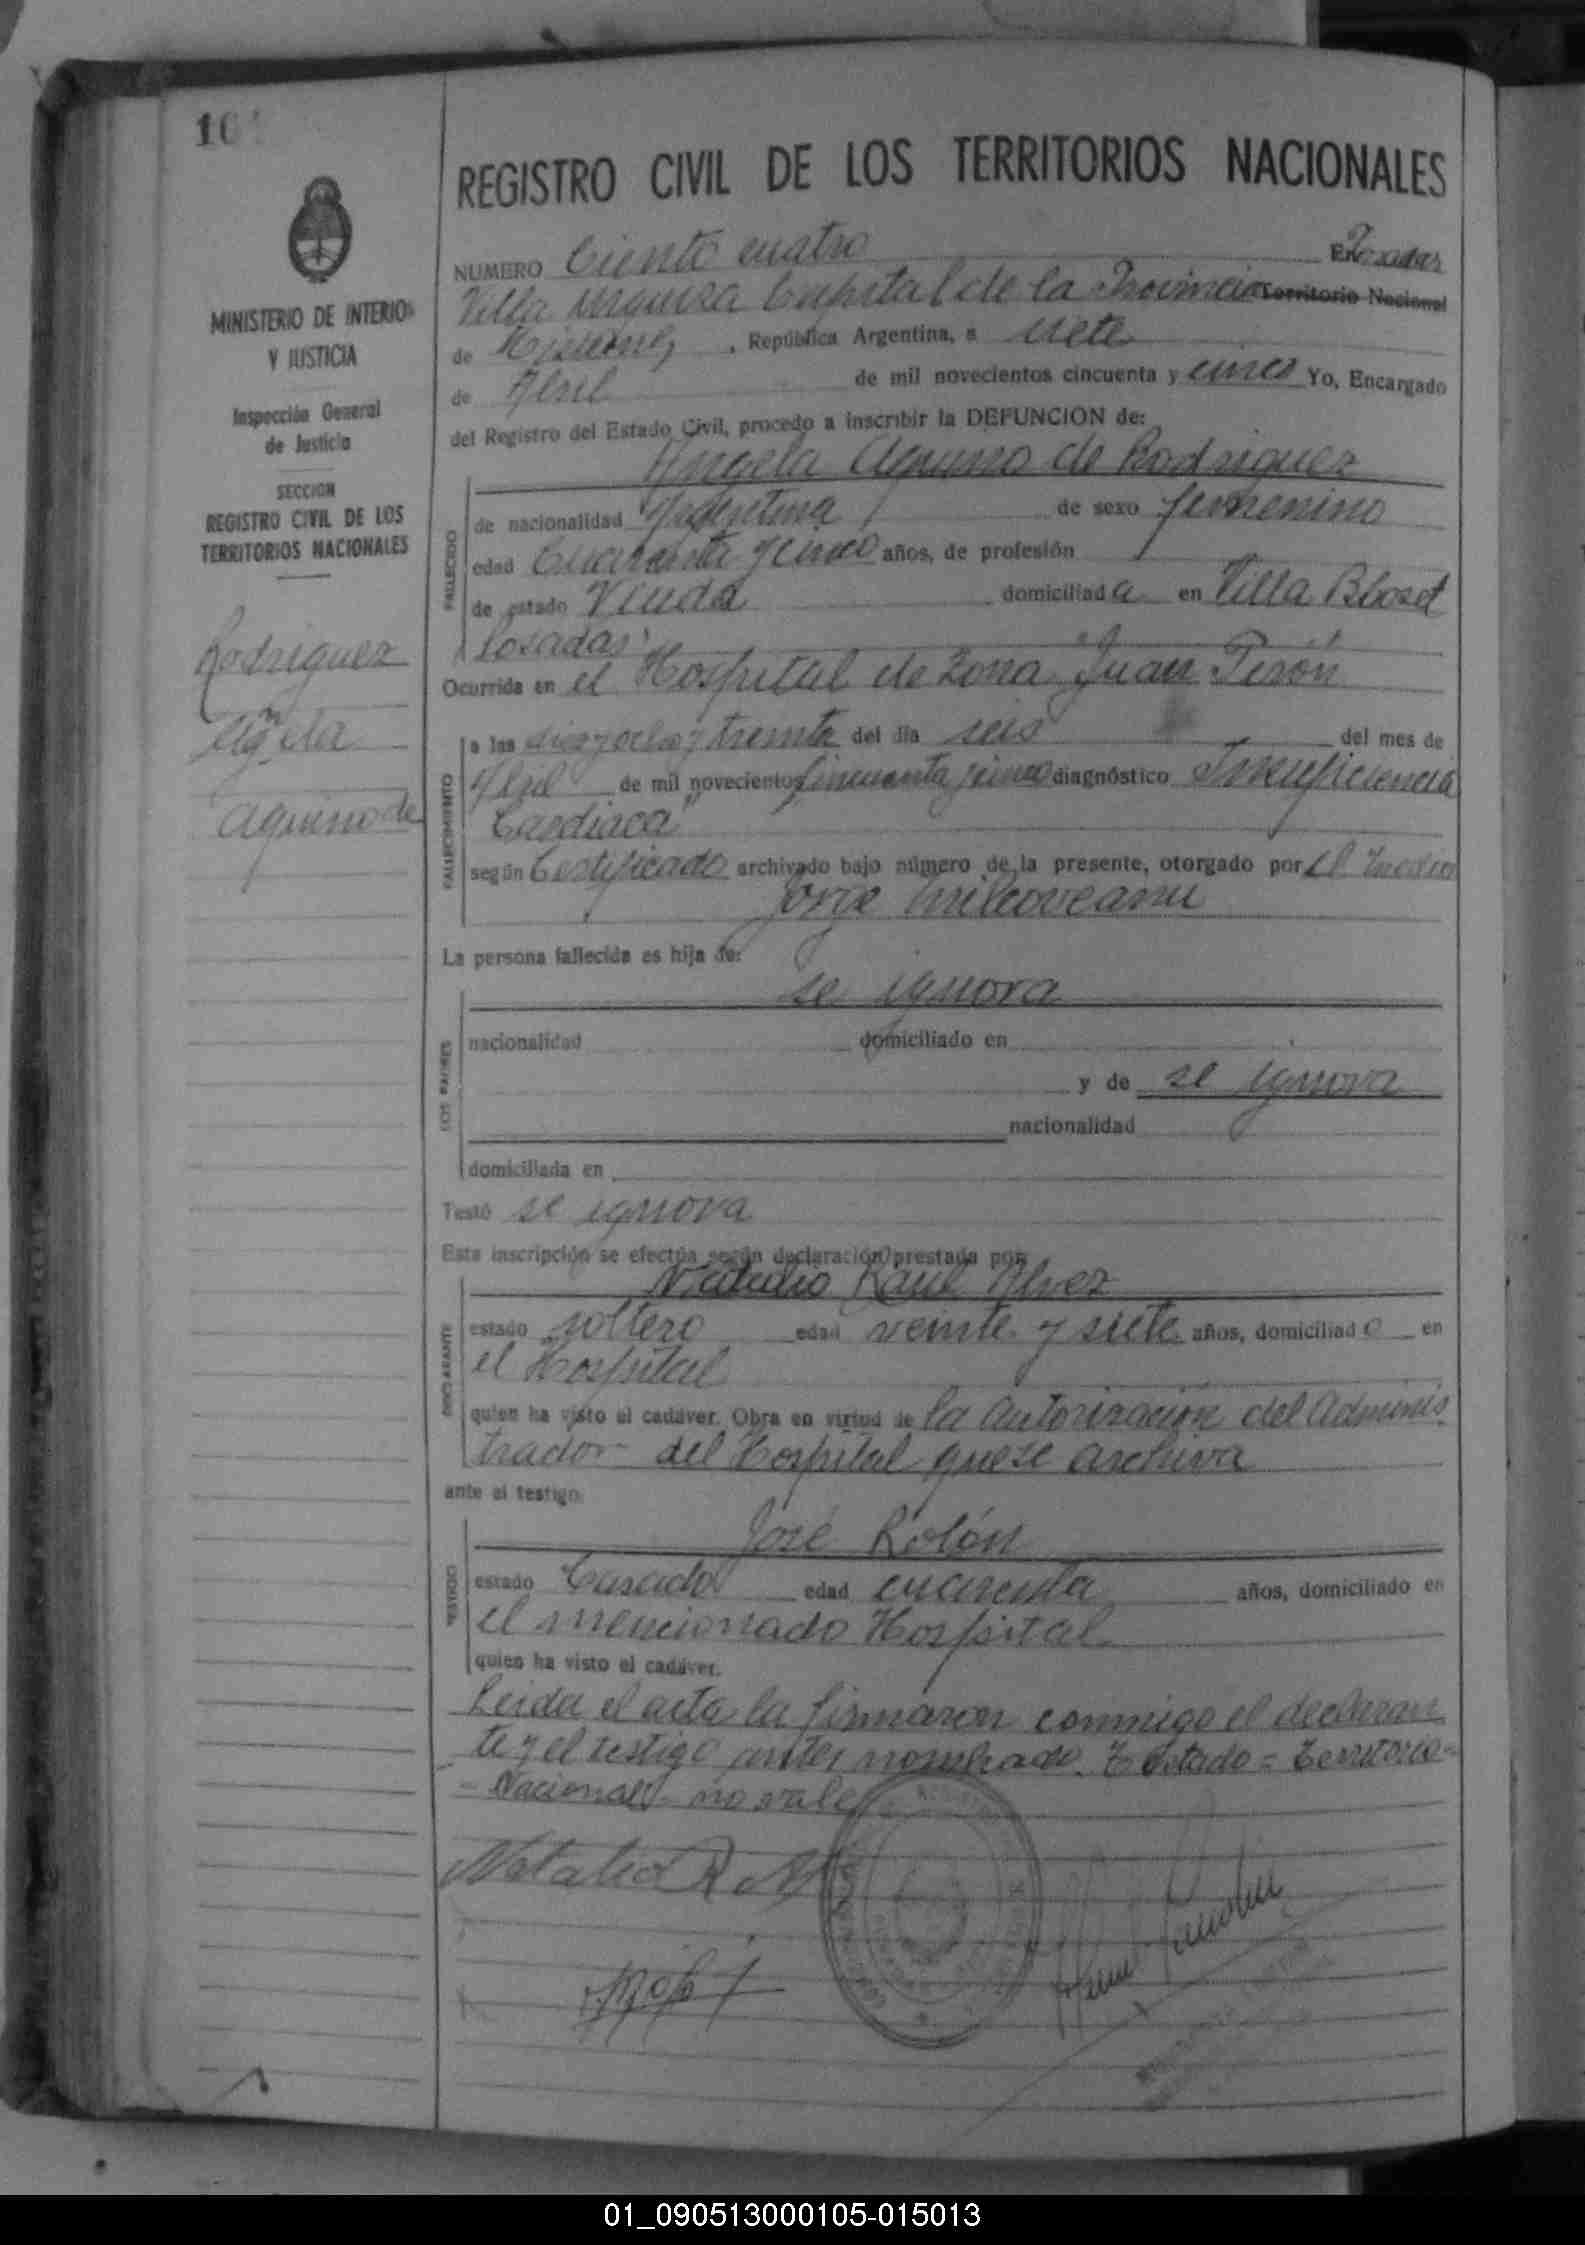 10
REGISTRO CIVIL DE LOS TERRITORIOS NACIONALES
MINISTERIO DE INTERIOR
Y JUSTICIA
Inspección General
de Justicia
SECCION
REGISTRO CIVIL DE LOS
TERRITORIOS NACIONALES
Rodriguez
Angela
Aquino de
NUMERO Ciento cuatro En Posadas
Villa Urquiza Capital de la Provincia Territorio Nacional
de Misiones, República Argentina, a siete
de Abril de mil novecientos cincuenta y cinco Yo, Encargado
del Registro del Estado Civil, procedo a inscribir la DEFUNCION de:
Angela Aquino de Rodriguez
FALLECIDO
de nacionalidad Argentina de sexo femenino
edad Cuarenta y cinco años, de profesión
de estado Viuda domiciliada en Villa Bloset
Posadas
Ocurrida en el Hospital de Zona "Juan Perón"
FALLECIMIENTO
a las diez y ocho y treinta del día seis del mes de
Abril de mil novecientos cincuenta y cinco diagnóstico Insuficiencia
Cardiaca"
según Certificado archivado bajo número de la presente, otorgado por el Medico
Jorge Milcoveanu
La persona fallecida es hija de:
se ignora
LOS PADRES
nacionalidad domiciliado en
y de se ignora
nacionalidad
domiciliada en
Testó se ignora
Esta inscripción se efectúa según declaración prestada por
Natalio Raul Alvez
DECLARANTE
estado soltero edad veinte y siete años, domiciliado en
el Hospital
quien ha visto el cadáver. Obra en virtud de la autorización del Adminis
trador del Hospital que se archiva
ante el testigo
José Rolón
TESTIGO
estado Casado edad cuarenta años, domiciliado en
el mencionado Hospital
quien ha visto el cadáver.
Leida el acta la firmaron conmigo el declaran
te y el testigo antes nombrado. Testado = Territorio =
= Nacional = no vale
Natalio R
01_090513000105-015013